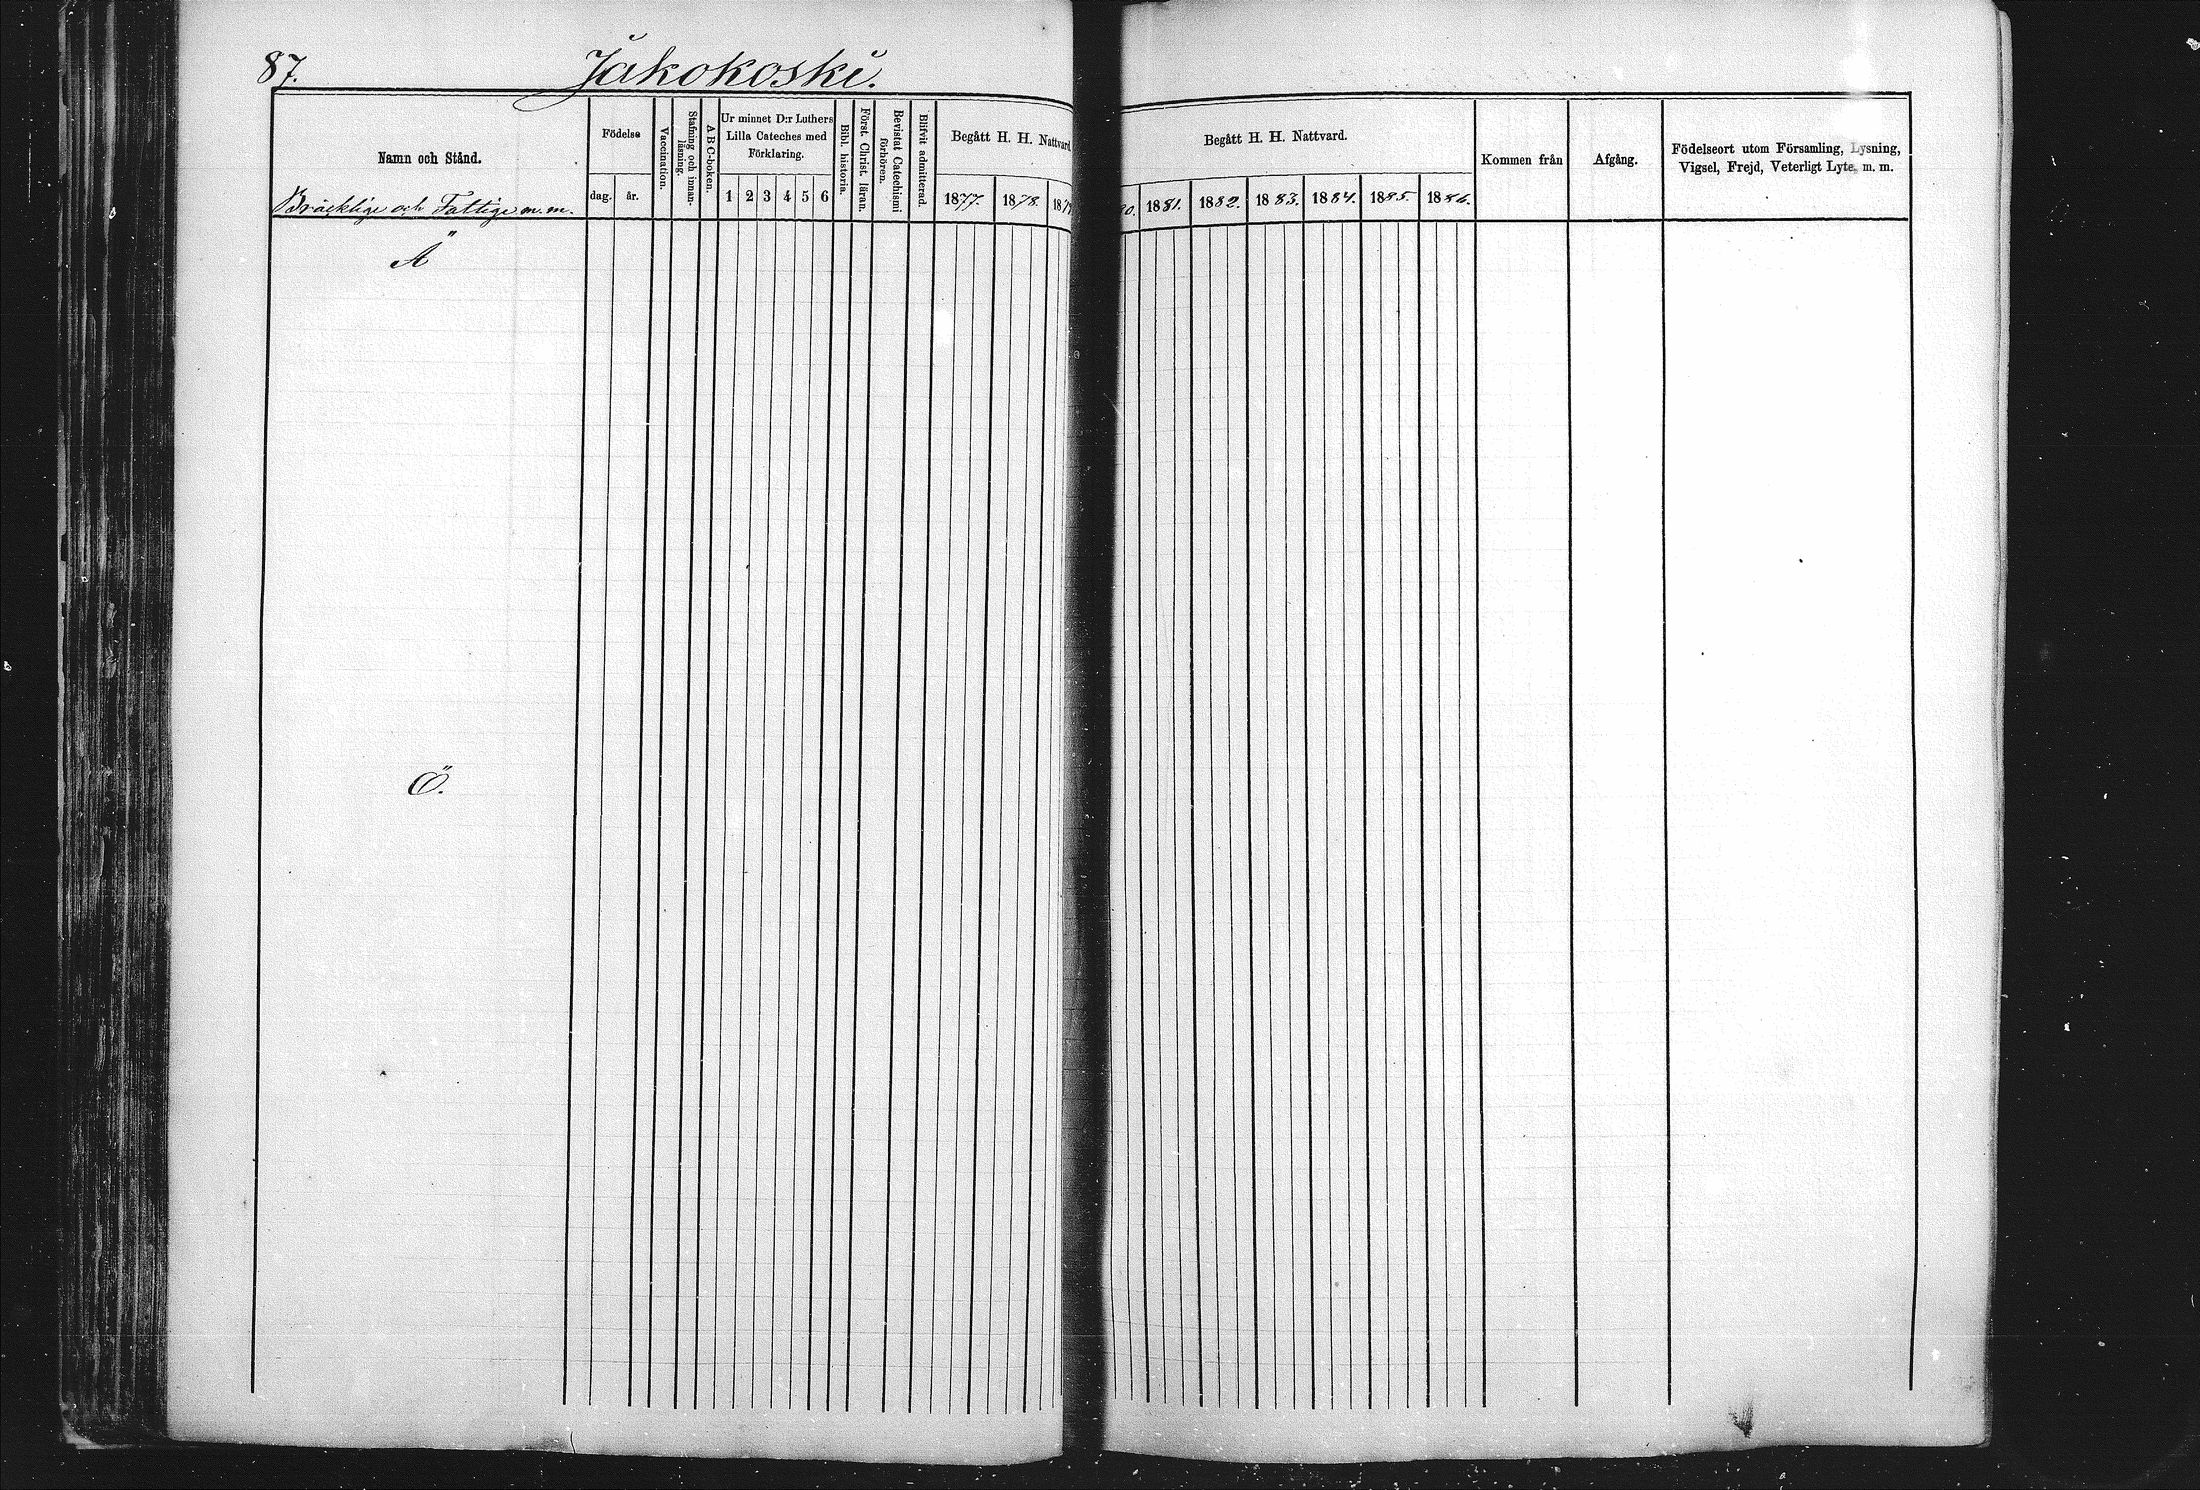 87. Jakokoski.
Namn och Stånd.
Bräcklige och Fattige m.m.
Födelse
dag. år.
Vaccination.
Stafning och innan-
läsning.
ABC-boken.
Ur minnet D:r Luthers
Lilla Cateches med
Förklaring.
1 2 3 4 5 6
Bibl. historia.
Först. Christ. läran.
Bevistat Catechismi
förhören.
Blifvit admitterad.
Begått H. H. Nattvard.
1877. 1878. 187
Begått H. H. Nattvard.
80. 1881. 1882. 1883. 1884. 1885. 1886.
Kommen från
Afgång.
Födelseort utom Församling, Lysning,
Vigsel, Frejd, Veterligt Lyte, m. m.
Ä
Ö.